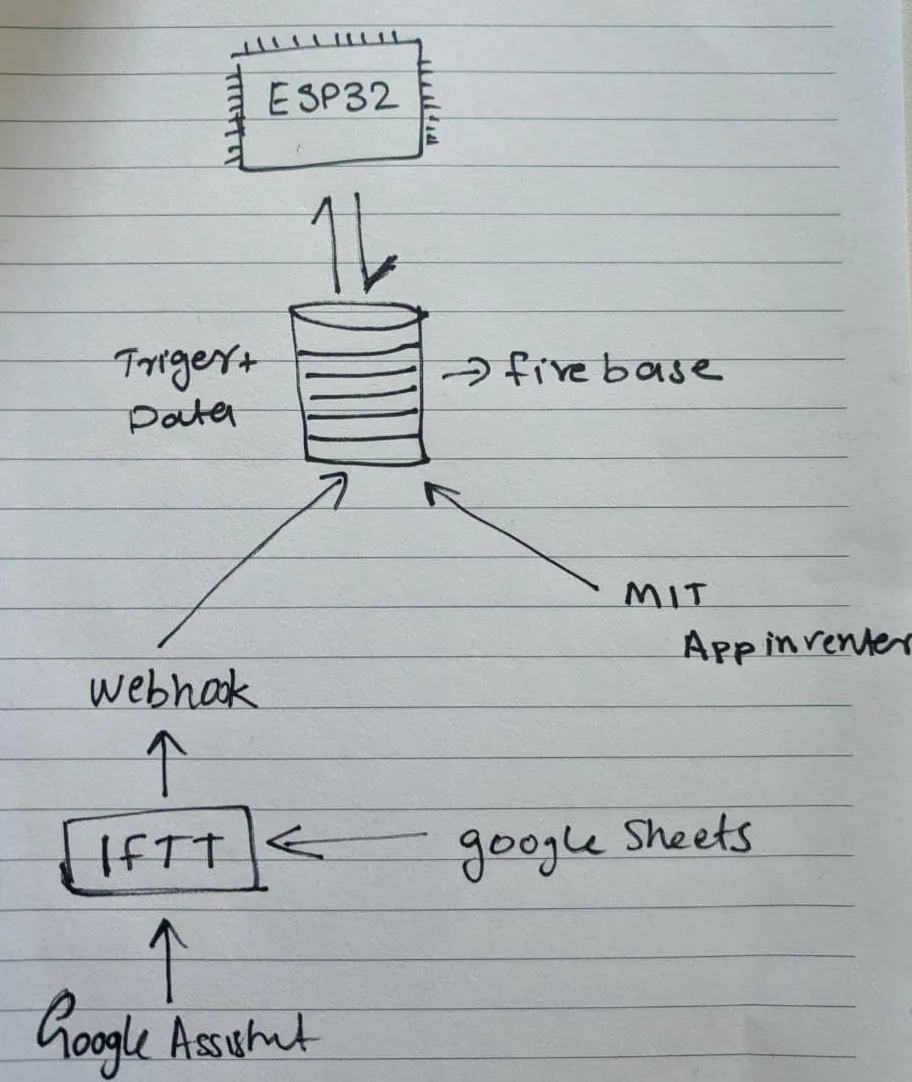 ESP32
Triger+
Data
→ firebase
MIT
App inventer
Webhook
IFTT
google Sheets
Google Assistnt